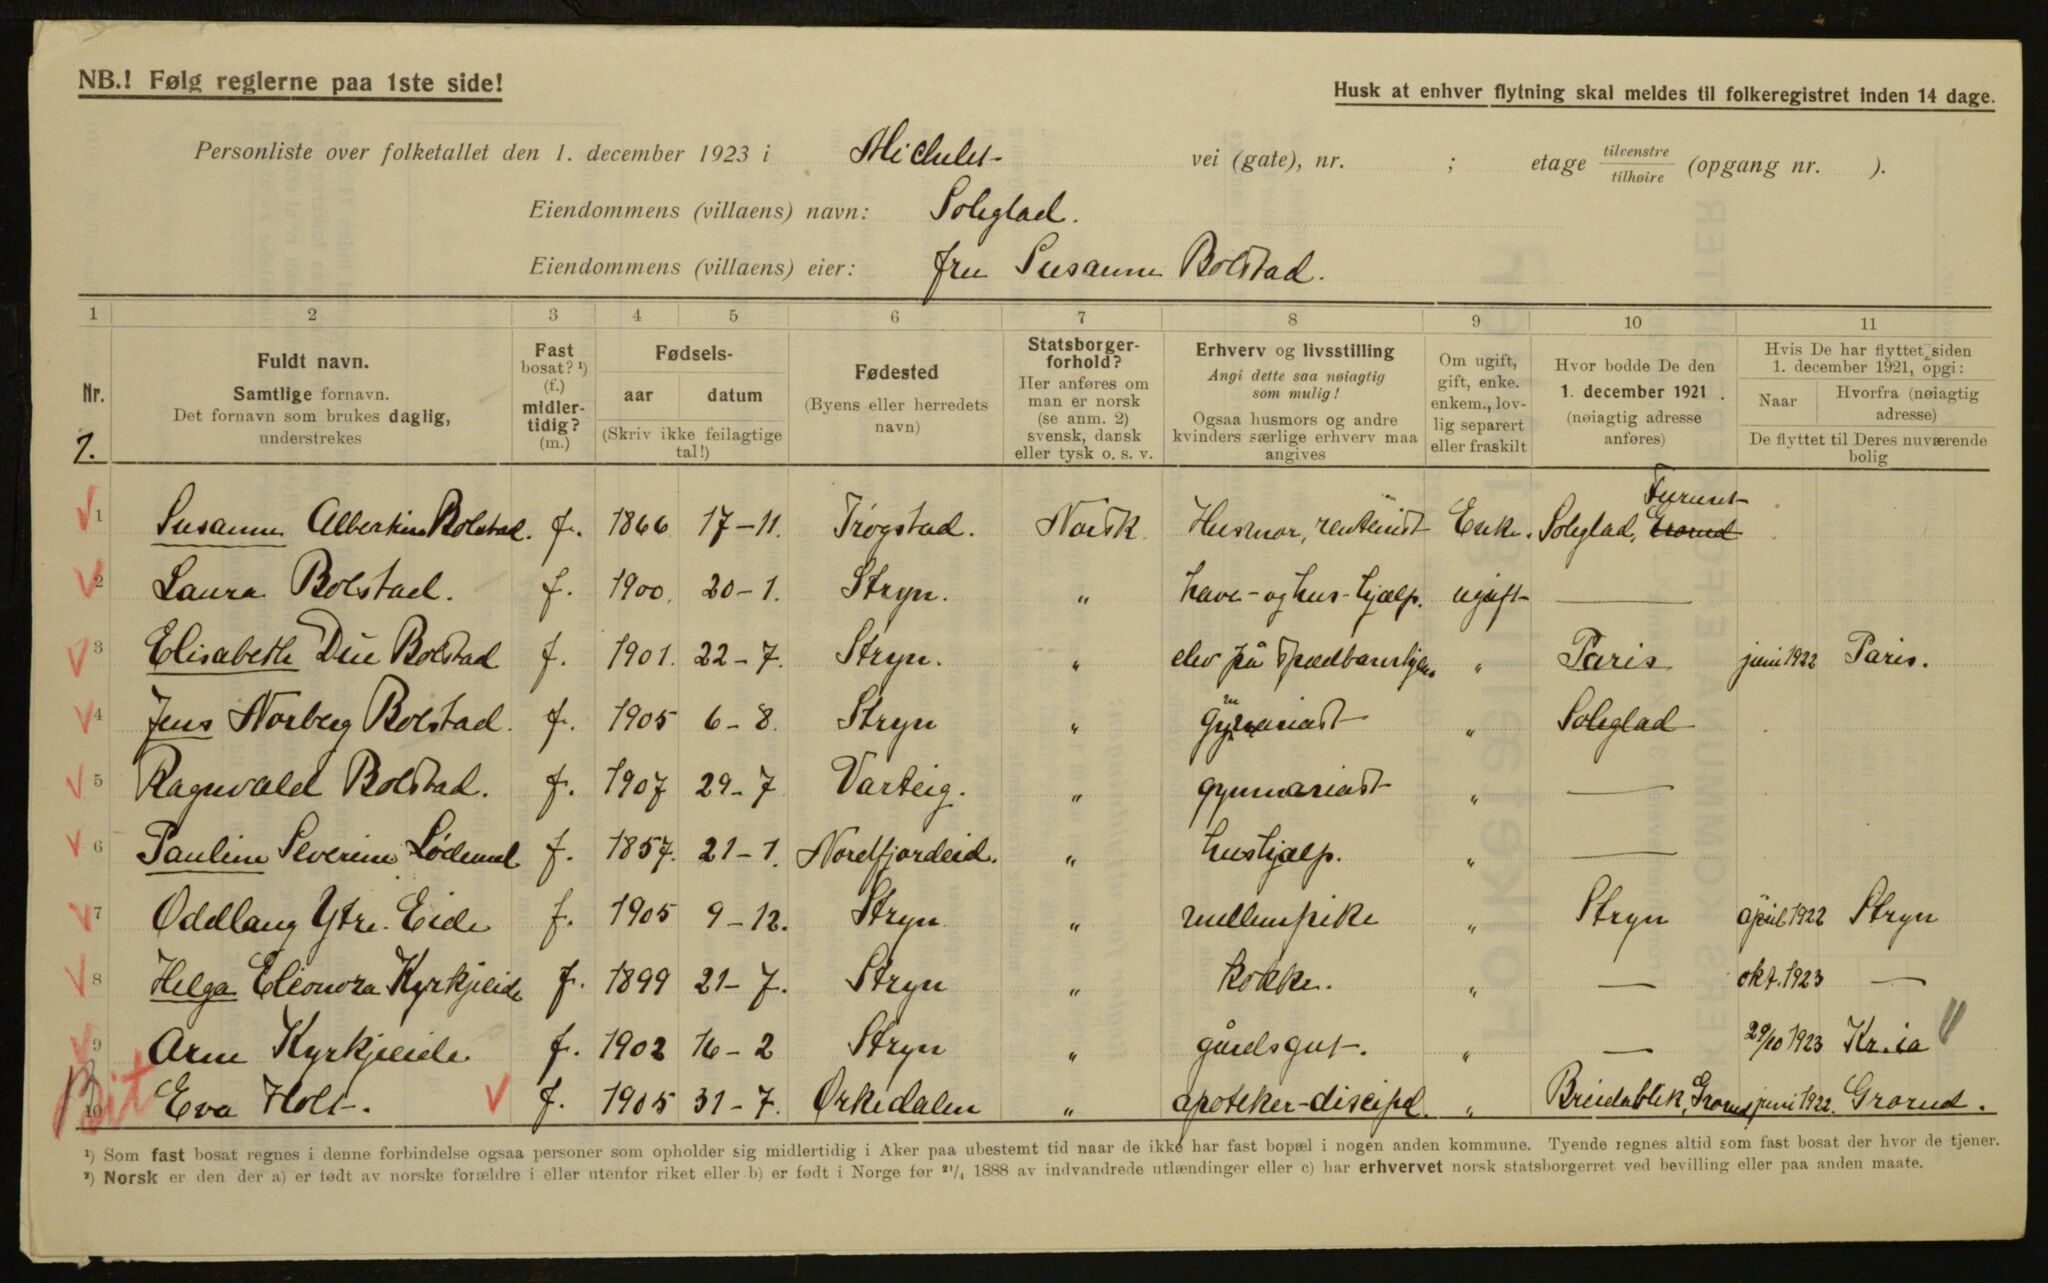 NB.! Følg reglerne paa 1ste side!
Husk at enhver flytning skal meldes til folkeregistret inden 14 dage.
Personliste over folketallet den 1. december 1923 i Michelet- vei (gate), nr. ; etage tilvenstre/tilhøire (opgang nr. ).
Eiendommens (villaens) navn: Solglad.
Eiendommens (villaens) eier: fru Susanne Bolstad.
1 2 3 4 5 6 7 8 9 10 11
Nr. Fuldt navn. Samtlige fornavn. Det fornavn som brukes daglig, understrekes
Fast bosat? ¹) (f.) midlertidig? (m.)
Fødsels- aar datum (Skriv ikke feilagtige tal!)
Fødested (Byens eller herredets navn)
Statsborgerforhold? Her anføres om man er norsk (se anm. 2) svensk, dansk eller tysk o. s. v.
Erhverv og livsstilling Angi dette saa nøiagtig som mulig! Ogsaa husmors og andre kvinders særlige erhverv maa angives
Om ugift, gift, enke. enkem., lovlig separert eller fraskilt
Hvor bodde De den 1. december 1921. (nøiagtig adresse anføres)
Hvis De har flyttet siden 1. december 1921, opgi: Naar Hvorfra (nøiagtig adresse) De flyttet til Deres nuværende bolig
7.
Furuset
1 Susanne Albertine Bolstad. f. 1866 17-11. Trøgstad. Norsk Husmor, rentenist Enke. Solglad, Grorud
2 Laura Bolstad. f. 1900. 20-1. Stryn. " have- og hus-hjælp. ugift —
3 Elisabeth Due Bolstad f. 1901. 22-7. Stryn. " elev på spædbarnshjem " Paris juni 1922 Paris.
4 Jens Norberg Bolstad. f. 1905 6-8. Stryn " gymnasiast " Solglad
5 Ragnvald Bolstad. f. 1907 29-7 Varteig. " gymnasiast " —
6 Pauline Severine Lødemel f. 1857. 21-1. Nordfjordeid. " hushjælp. " —
7 Oddlaug Ytre-Eide f. 1905 9-12. Stryn " mellempike " Stryn april 1922 Stryn
8 Helga Eleonora Kyrkjeide f. 1899 21-7. Stryn " kokke. " — okt. 1923 —
9 Arne Kyrkjeide f. 1902 16-2 Stryn " gårdsgut. " — 29/10 1923 Kr.ia "
10 Eva Holt. f. 1905 31-7. Ørkedalen " apoteker-discipel. " Breidablik, Grorud juni 1922. Grorud.
¹) Som fast bosat regnes i denne forbindelse ogsaa personer som opholder sig midlertidig i Aker paa ubestemt tid naar de ikke har fast bopæl i nogen anden kommune. Tyende regnes altid som fast bosat der hvor de tjener.
²) Norsk er den der a) er født av norske forældre i eller utenfor riket eller b) er født i Norge før ²¹/₄ 1888 av indvandrede utlændinger eller c) har erhvervet norsk statsborgerret ved bevilling eller paa anden maate.